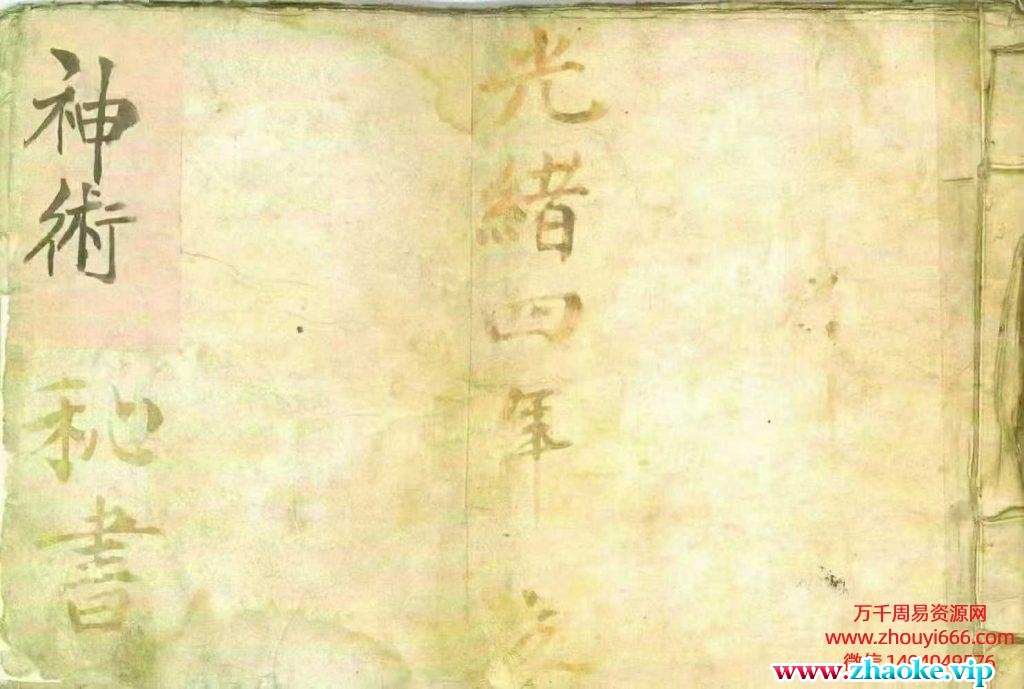 光緒四年
神術秘書
万千周易资源网
www.zhouyi666.com
www.zhaoke.vip